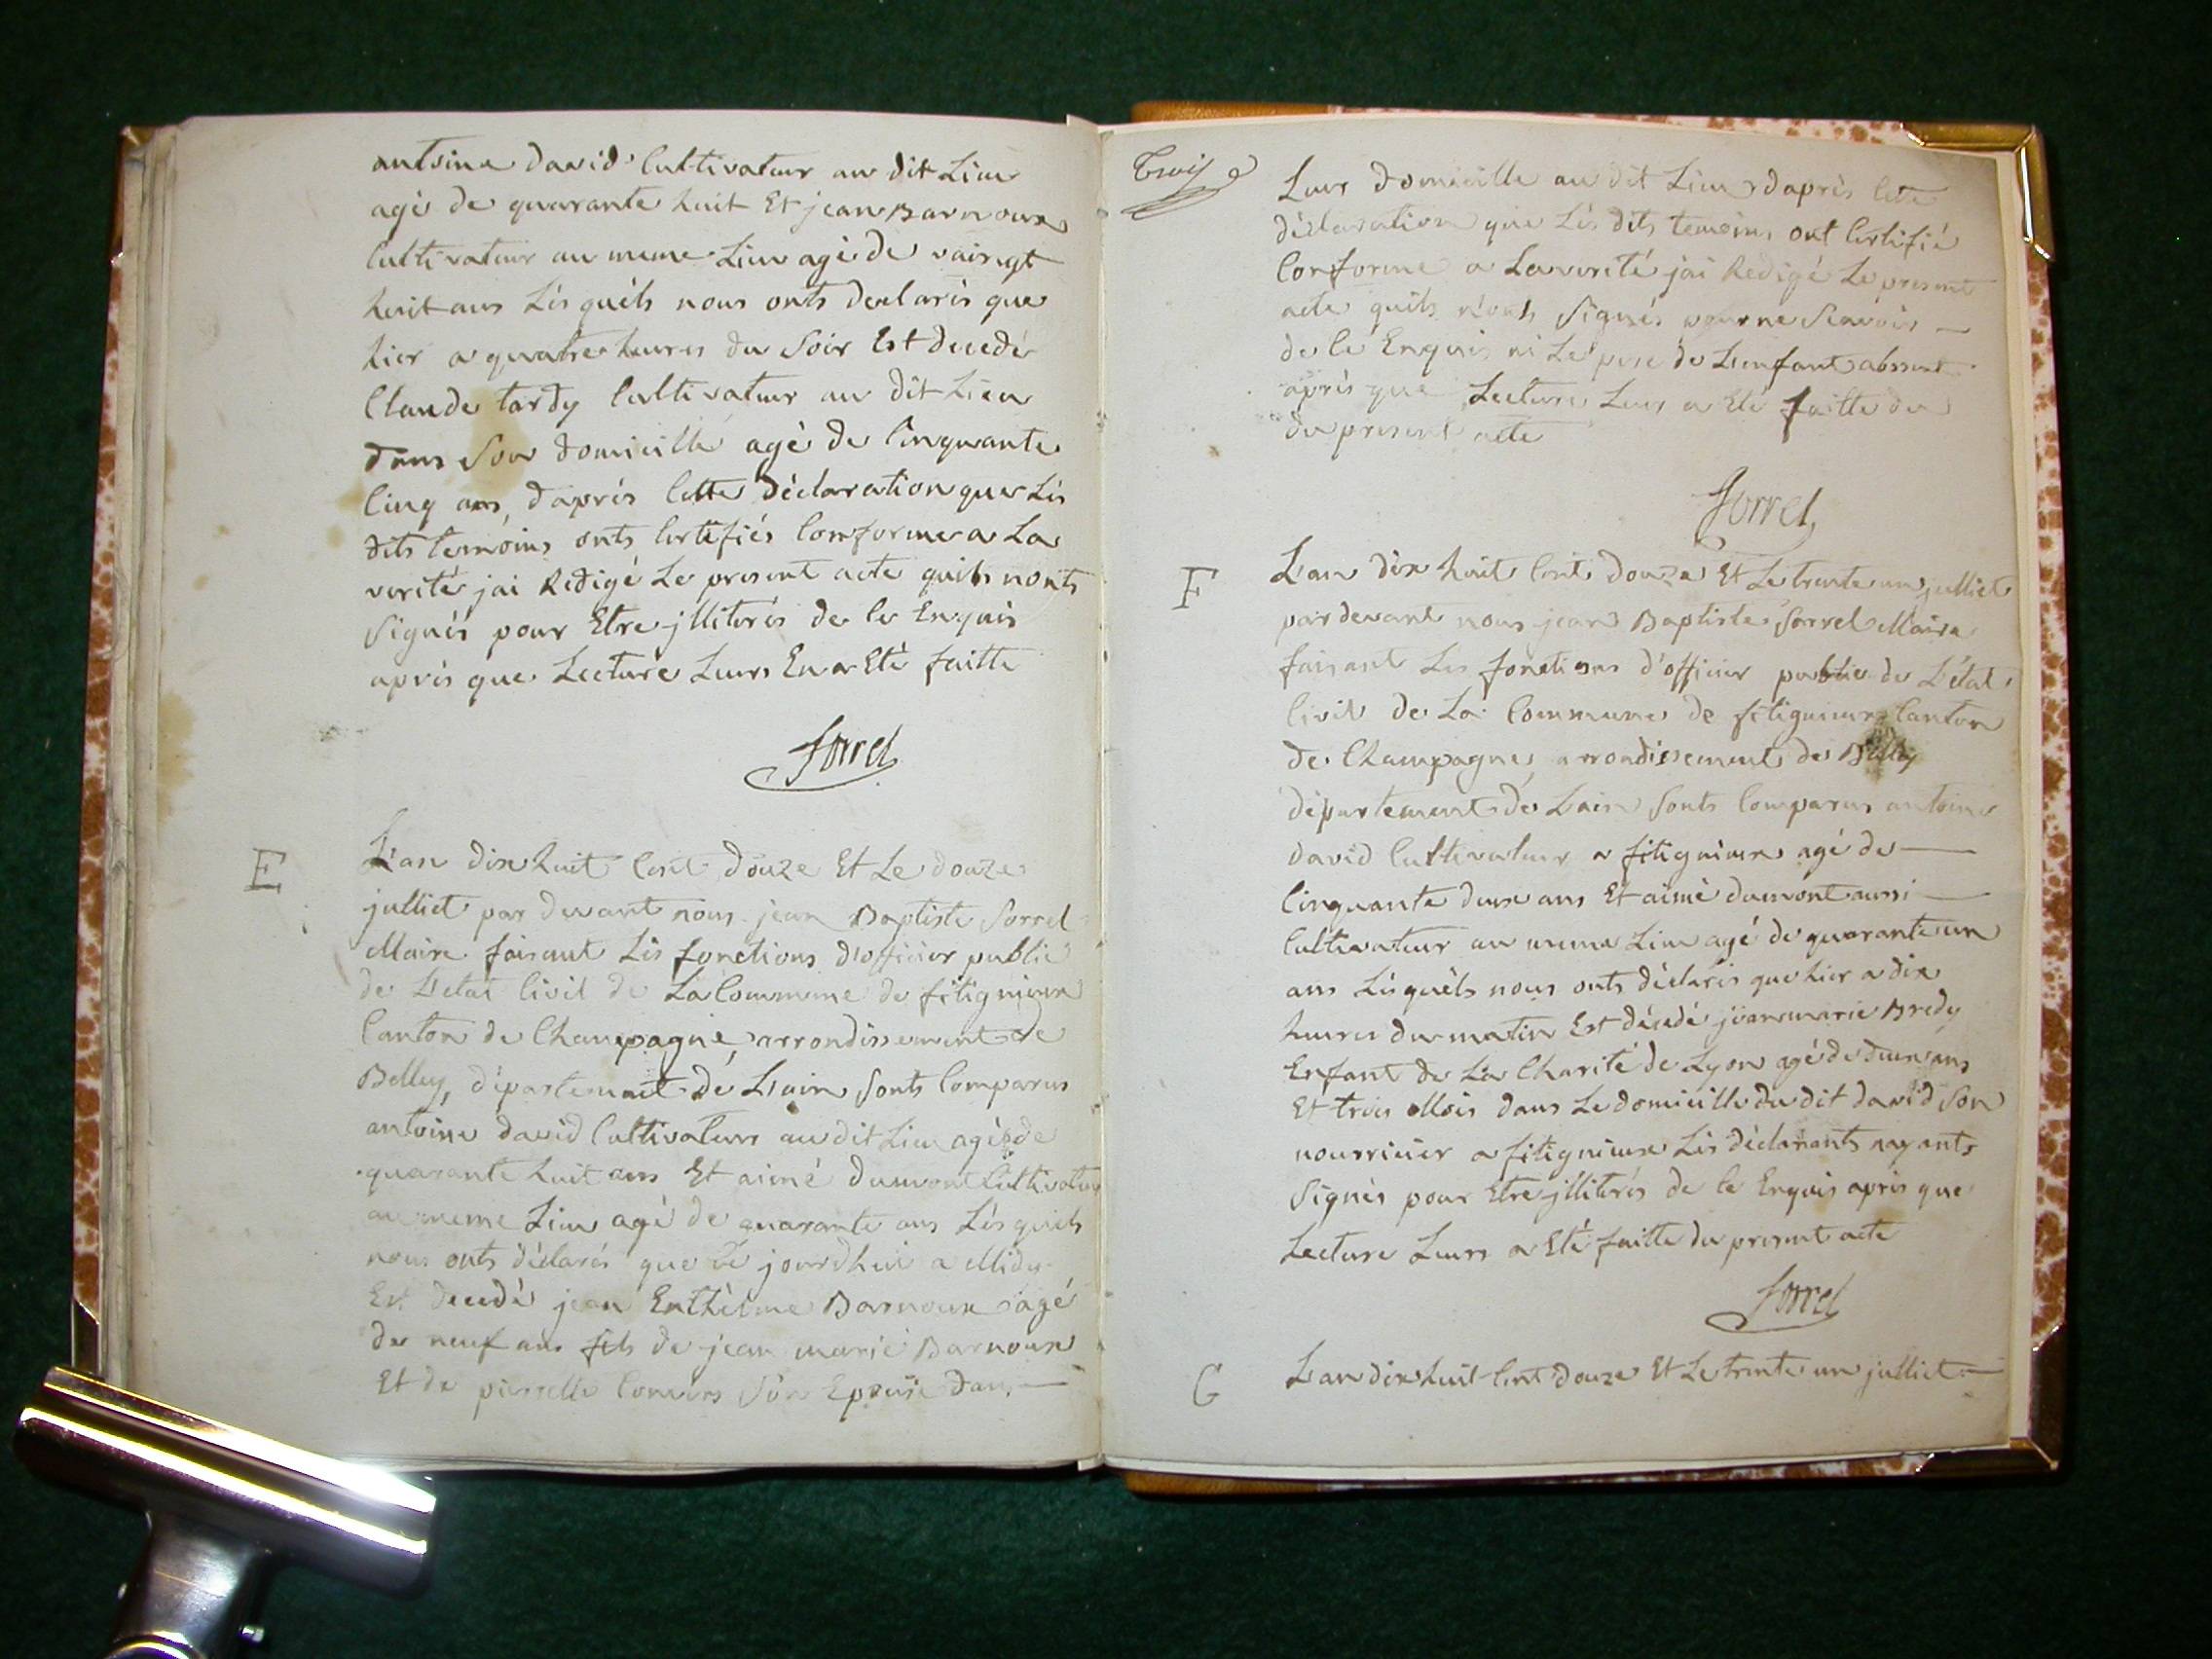 antoine david Cultivateur au dit Lieu
agé de quarante huit Et jean Barnoux
Cultivateur au meme Lieu agé de vaingt
huit ans Lésquéls nous onts declarés que
hier a quatre heures du Soir Est decedé
Claude tardy Cultivateur au dit Lieu
dans Son domicille agé de Cinquante
Cinq ans, d'aprés Cette déclaration que Lés
dits temoins onts Certifiés Conforme a La
verité jai Redigé Le present acte quils nonts
Signés pour Etre jlliterés de Ce Enquis
aprés que Lecture Leurs En a Eté faitte
Sorrel
E
L'an dix huit Cent douze Et Le douze
julliet par devant nous jean Baptiste Sorrel
Maire faisant Lés fonctions d'officier public
de L'etat Civil de La Commune de fitignieux
Canton de Champagne, arrondissement de
Belley, département de L'ain Sonts Comparus
antoine david Cultivateur au dit Lieu agé de
quarante huit ans Et aimé dumont Cultivateur
au meme Lieu agé de quarante ans Lésquéls
nous onts déclarés que Ce jourdhui a Midy
Est decedé jean Enthelme Barnoux agé
de neuf ans fils de jean marie Barnoux
Et de pierrette Convers Son Epouse dans
Trois
Leur domicille au dit Lieu daprés Cette
déclaration que Lés dits temoins ont Certifié
Conforme a La verité jai Redigé Le present
acte quils n'onts Signés pour ne Scavoir
de Ce Enquis ni Le pere de L'enfant absent
aprés que Lecture Leur a Eté faitte du
du present acte
Sorrel
F
L'an dix huit Cent douze Et Le trente un julliet
pardevant nous jean Baptiste Sorrel Maire
faisant Les fonctions d'officier public de L'état
Civil de La Commune de fitignieux Canton
de Champagne, arrondissement de Belley
département de L'ain Sonts Comparus antoine
david Cultivateur a fitignieux agé de
Cinquante deux ans Et aimé dumont aussi
Cultivateur au meme Lieu agé de quarante un
ans Lésquéls nous onts déclarés que hier a dix
heures du matin Est décedé jeanmarie Bredy
Enfant de La Charité de Lyon agé de deux ans
Et trois Mois dans Le domicille du dit david Son
nourricier a fitignieux Lés déclarants nayants
Signés pour Etre jlliterés de Ce Enquis aprés que
Lecture Leurs a Eté faitte du present acte
Sorrel
G
L'an dix huit Cent douze Et Le trente un julliet